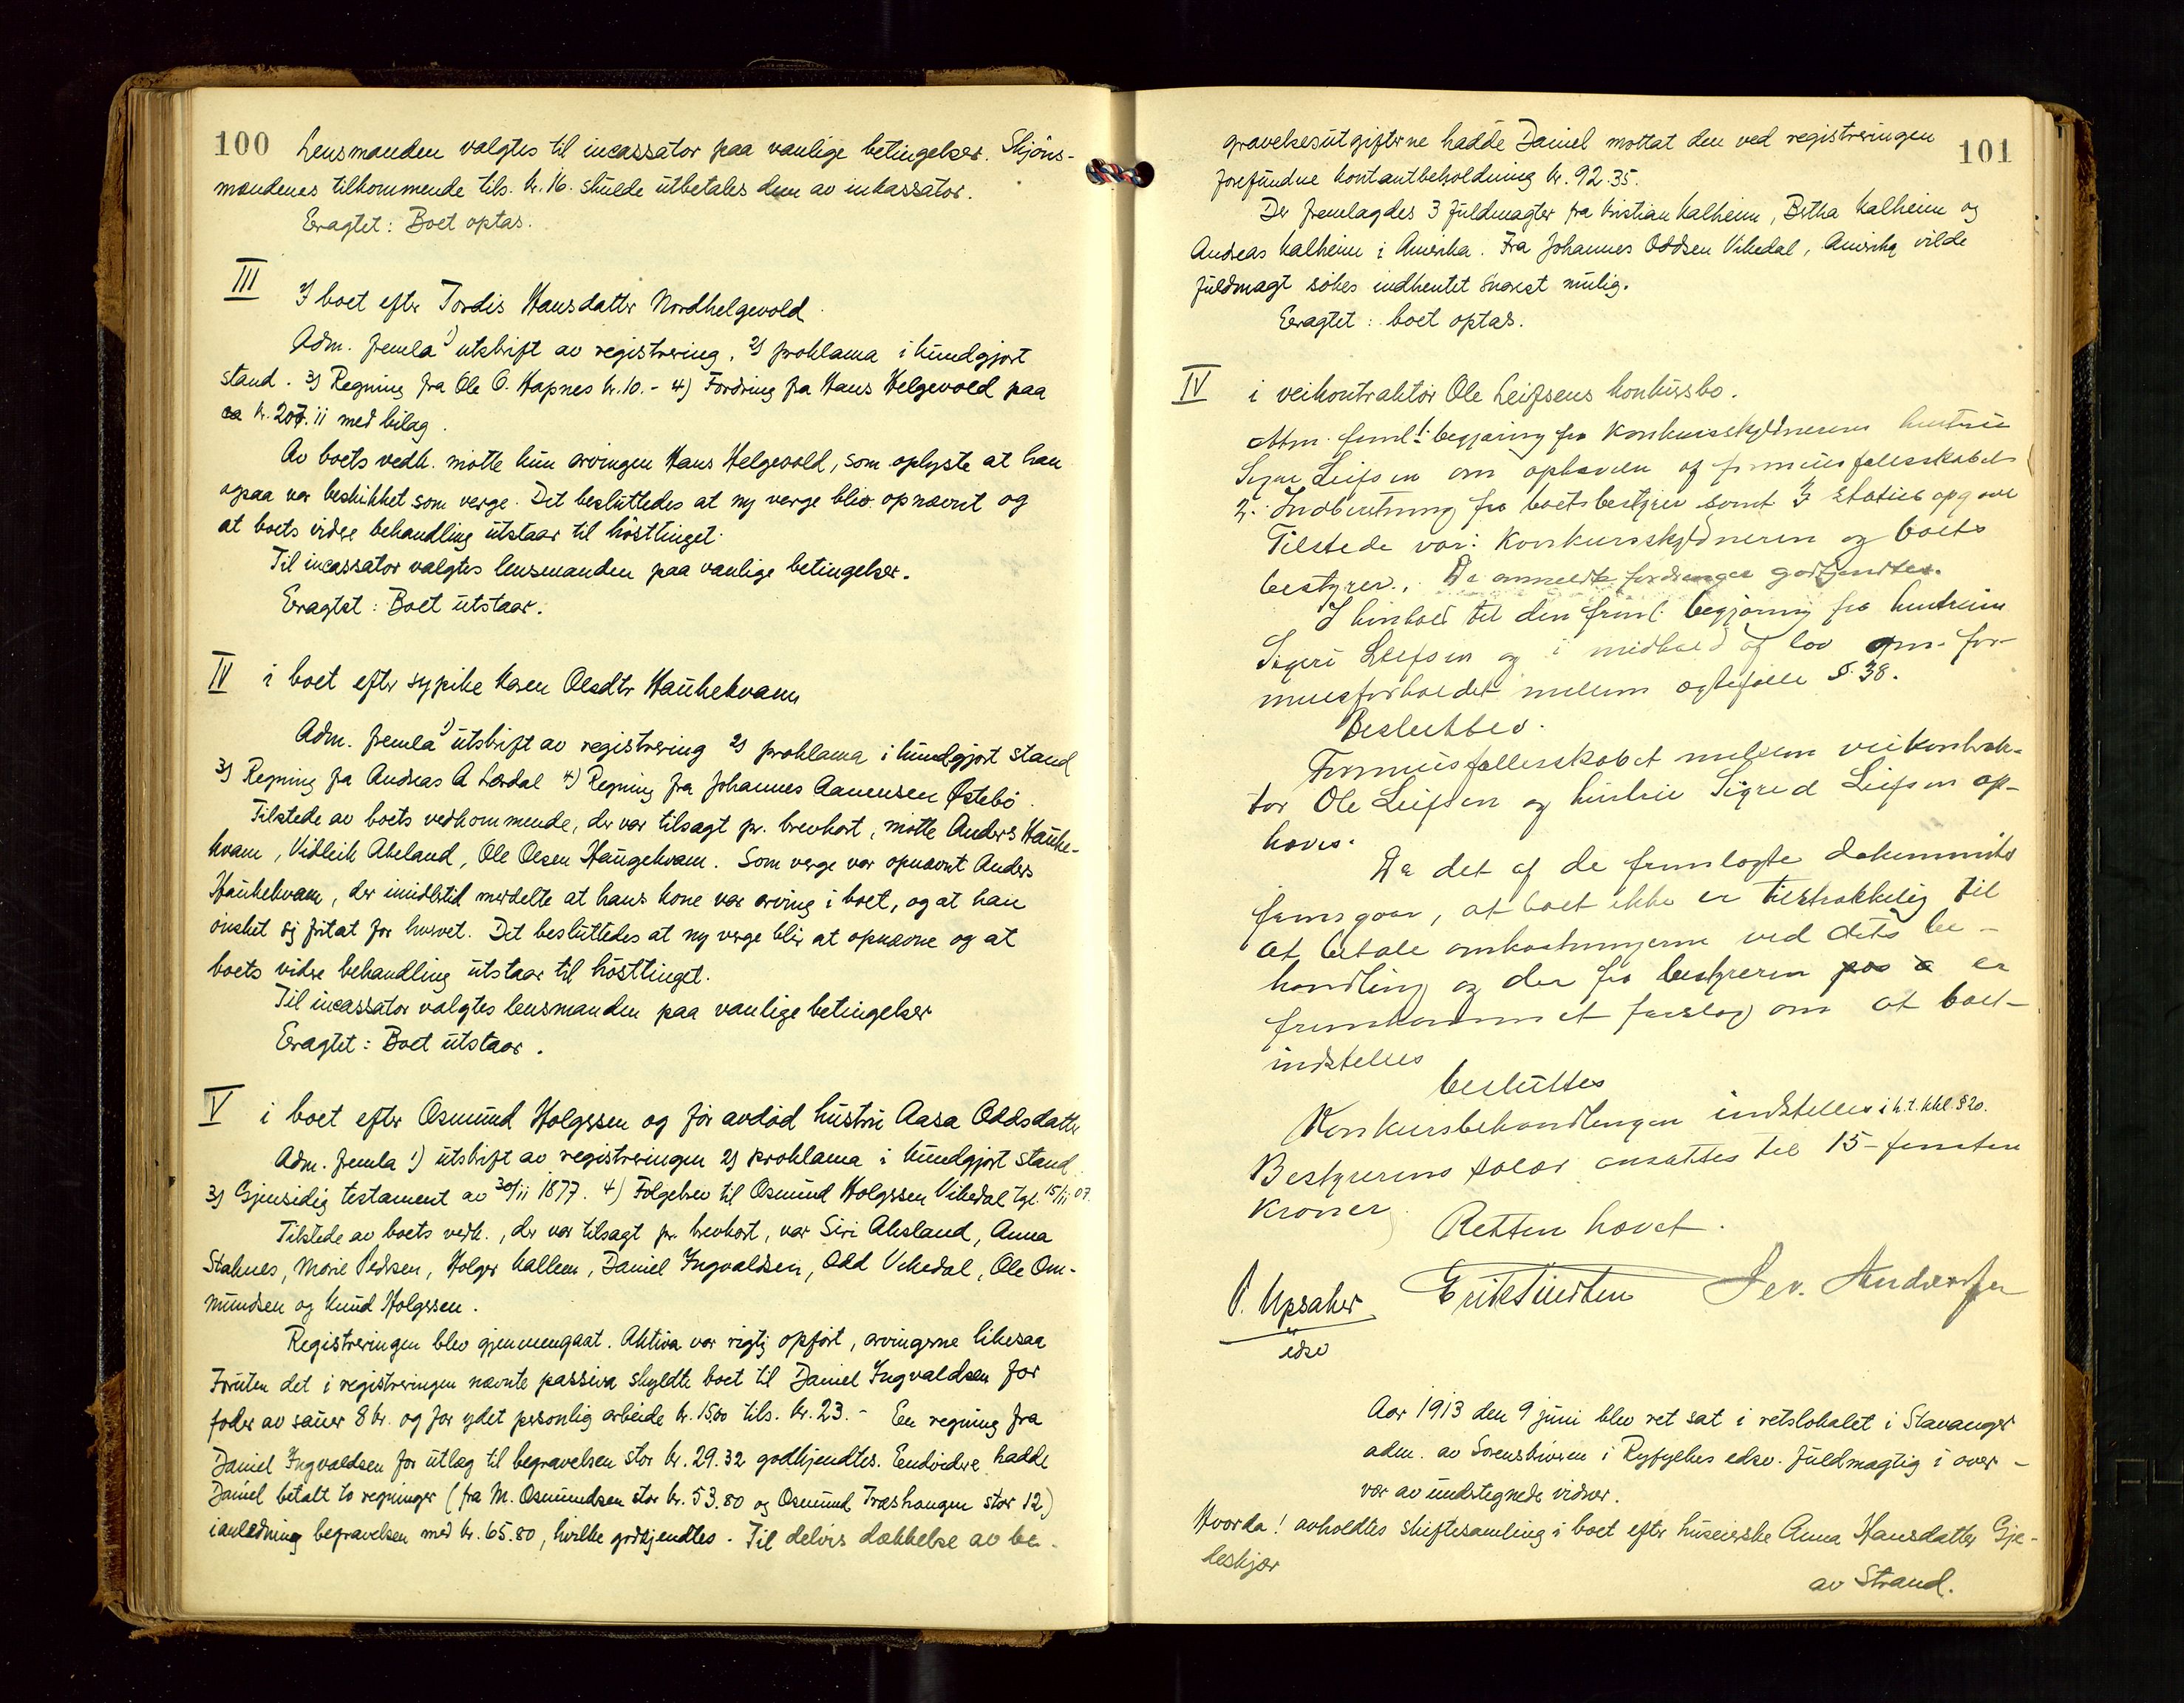 100
Lensmanden valgtes til incassator paa vanlige betingelser. Skjöns-
mændenes tilkommende tils. kr. 16. skulde utbetales dem av inkassator.
Eragtet: Boet optas.
III
I boet efter Tordis Hansdatter Nordhelgevold
Adm. fremla 1) utskrift av registrering, 2) proklama i kundgjort
stand. 3) Regning fra Ole O. Hapnes kr. 10.- 4) Fordring fra Hans Helgevold paa
kr. 207.11 med bilag.
Av boets vedk. mötte kun arvingen Hans Helgevold, som oplyste at han
ogsaa var beskikket som verge. Det besluttedes at ny verge blev opnævnt og
at boets videre behandling utstaar til hösttinget.
Til incassator valgtes lensmanden paa vanlige betingelser.
Eragtet: Boet utstaar.
IV
i boet efter sypike Karen Olsdtr Haukekvam
Adm. fremla 1) utskrift av registrering 2) proklama i kundgjort stand
3) Regning fra Andreas A Lærdal 4) Regning fra Johannes Aanensen Østebö.
Tilstede av boets vedkommende, der var tilsagt pr. brevkort, mötte Anders Hauke-
kvam, Vidleik Abeland, Ole Olsen Haugekvam. Som verge var opnævnt Anders
Haukekvam, der imidlertid meddelte at hans kone var arving i boet, og at han
önsket sig fritat for hvervet. Det besluttedes at ny verge blir at opnævne og at
boets videre behandling utstaar til hösttinget.
Til incassator valgtes lensmanden paa vanlige betingelser
Eragtet: Boet utstaar.
V
i boet efter Osmund Holgersen og för avdöd hustru Aasa Oddsdatter
Adm. fremla 1) utskrift av registreringen 2) proklama i kundgjort stand
3) Gjensidig testament av 30/11 1877. 4) Fölgebrev til Osmund Holgersen Vikedal tgl. 15/11 07.
Tilstede av boets vedk., der var tilsagt pr. brevkort, var Siri Aksland, Anna
Staknes, Marie Pedersen, Holger Kallem, Daniel Ingvaldsen, Odd Vikedal, Ole Om-
mundsen og Knud Holgersen.
Registreringen blev gjennemgaat. Aktiva var rigtig opfört, arvingerne likesaa
Foruten det i registreringen nævnte passiva skyldte boet til Daniel Ingvaldsen for
foder av sauer 8 kr. og for ydet personlig arbeide kr. 15.00 tils. kr. 23.- En regning fra
Daniel Ingvaldsen for utlæg til begravelsen stor kr. 29.32 godkjendtes. Eendvidere hadde
Daniel betalt to regninger (fra M. Osmundsen stor kr. 53.80 og Osmund Træshaugen stor 12)
i anledning begravelsen med kr. 65.80, hvilke godkjendtes. Til delvis dækkelse av be-
101
gravelsesutgifterne hadde Daniel mottat den ved registreringen
forefundne kontantbeholdning kr. 92.35.
Der fremlagdes 3 fuldmagter fra Kristian Kalheim, Betha Kalheim og
Andreas Kalheim i Amerika. Fra Johannes Oddsen Vikedal, Amerika vilde
fuldmagt sökes indhentet snarest mulig.
Eragtet: boet optas.
IV
i veikontraktör Ole Leifsens konkursbo.
Adm. freml. 1. begjæring fra Konkursskyldnerens hustru
Signe Leifsen om ophævelse af formuesfællesskabet
2. Indberetning fra boets bestyrer samt 3 status opgave
Tilstede var: Konkursskyldneren og boets
bestyrer. De anmeldte fordringer godkjendtes.
I henhold til den freml. begjæring fra hustruen
Sigrid Leifsen og i medhold af lov om for-
muesforholdet mellem ægtefæller § 38.
Besluttes.
Formuesfællesskabet mellem veikontrak-
tör Ole Leifsen og hustru Sigrid Leifsen op-
hæves.
Da det af de fremlagte dokumenter
fremgaar, at boet ikke er tilstrækkelig til
at betale omkostningerne ved dets be-
handling og der fra bestyreren er
fremkommet forslag om at boet
indstilles
besluttes
Konkursbehandlingen indstilles i h. t. kkl. § 20.
Bestyrerens salær ansættes til 15 - femten
Kroner.
Retten hævet.
P. Upsaker
edsv
Sev. Andersen
Aar 1913 den 9 juni blev ret sat i retslokalet i Stavanger
adm. av Sorenskriveren i Ryfylkes edsv. fuldmægtig i over-
vær av undertegnede vidner.
Hvorda! avholdtes skiftesamling i boet efter huseierske Anna Hansdatter Gje-
deskjær
av Strand.